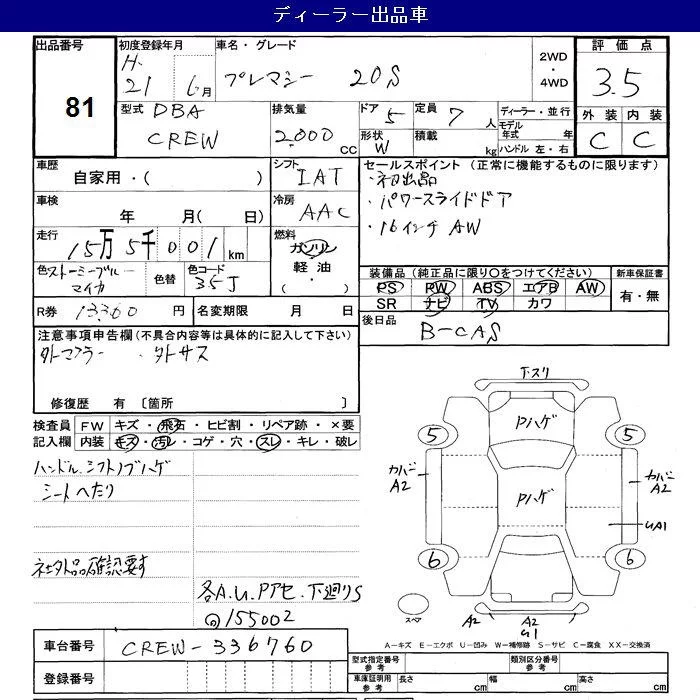 ディーラー出品車
出品番号
81
初度登録年月
H.
21 6月
車名・グレード
プレマシー 20S
2WD
・
4WD
評価点
3.5
外装 内装
C C
型式 DBA
CREW
排気量
2,000 cc
ドア 5
定員 7 人
形状 W
積載 kg
ディーラー・並行
モデル年式 年
ハンドル 左・右
車歴
自家用・( )
シフト
IAT
車検
年 月( 日)
冷房
AAC
走行
15万5千001km
燃料
ガソリン
軽油
・
( )
色 ストーミーブルーマイカ
色替
色コード
35J
R券 13360 円
名変期限 月 日
セールスポイント (正常に機能するものに限ります)
・初出品
・パワースライドドア
・16インチ AW
装備品(純正品に限り○をつけてください)
PS PW ABS エアB AW
SR ナビ TV カワ
新車保証書
有・無
後日品
B-CAS
注意事項申告欄(不具合内容等は具体的に記入して下さい)
外マフラー ・外サス
修復歴 有 〔箇所 〕
検査員記入欄
FW キズ・飛石・ヒビ割・リペア跡・×要
内装 キズ・汚レ・コゲ・穴・スレ・キレ・破レ
ハンドル.シフトノブハゲ
シートへたり
社外品確認要す
各A.U.Pアセ.下廻りS
◎155002
下スリ
Pハゲ
5 5
カバーA2
カバーA2
Pハゲ
UA1
6 6
スペア
A2
A2
U1
A-キズ E-エクボ U-凹み W-補修跡 S-サビ C-腐食 XX-交換済
車台番号 CREW-336760
登録番号
型式指定番号 参考
類別区分番号 参考
車庫証明用 参考
長さ cm
幅 cm
高さ cm